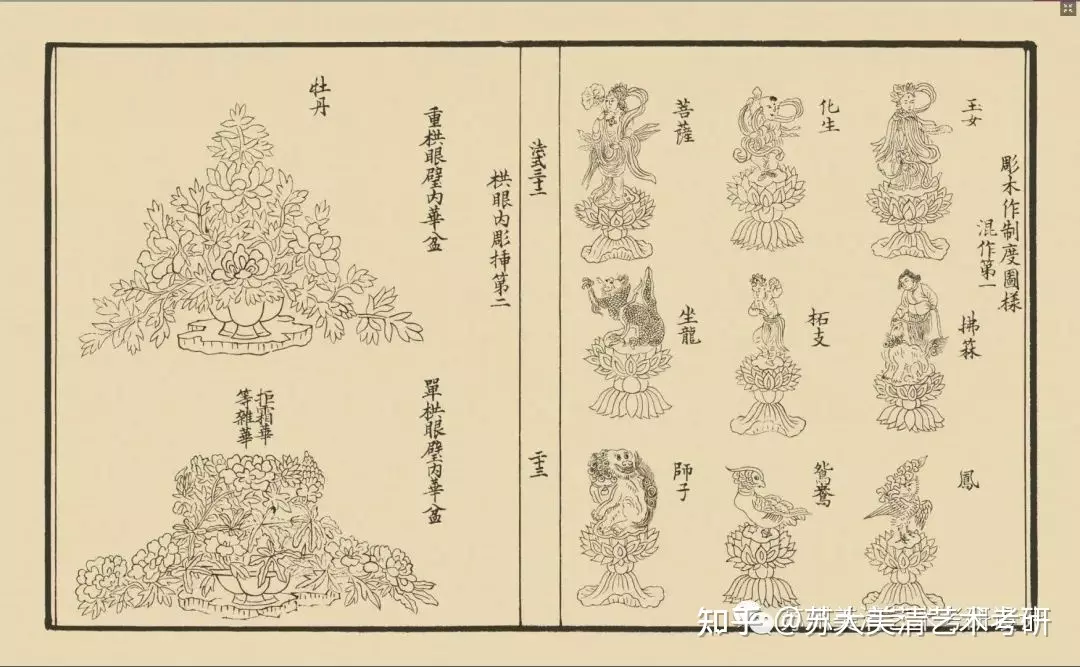 彫木作制度圖樣
混作第一
玉女
化生
菩薩
拂菻
柘支
坐龍
鳳
鴛鴦
師子
法式三十二
二十三
栱眼内彫揷第二
重栱眼壁内華盆
牡丹
單栱眼壁内華盆
拒霜華
等雜華
知乎 @苏大美清艺术考研